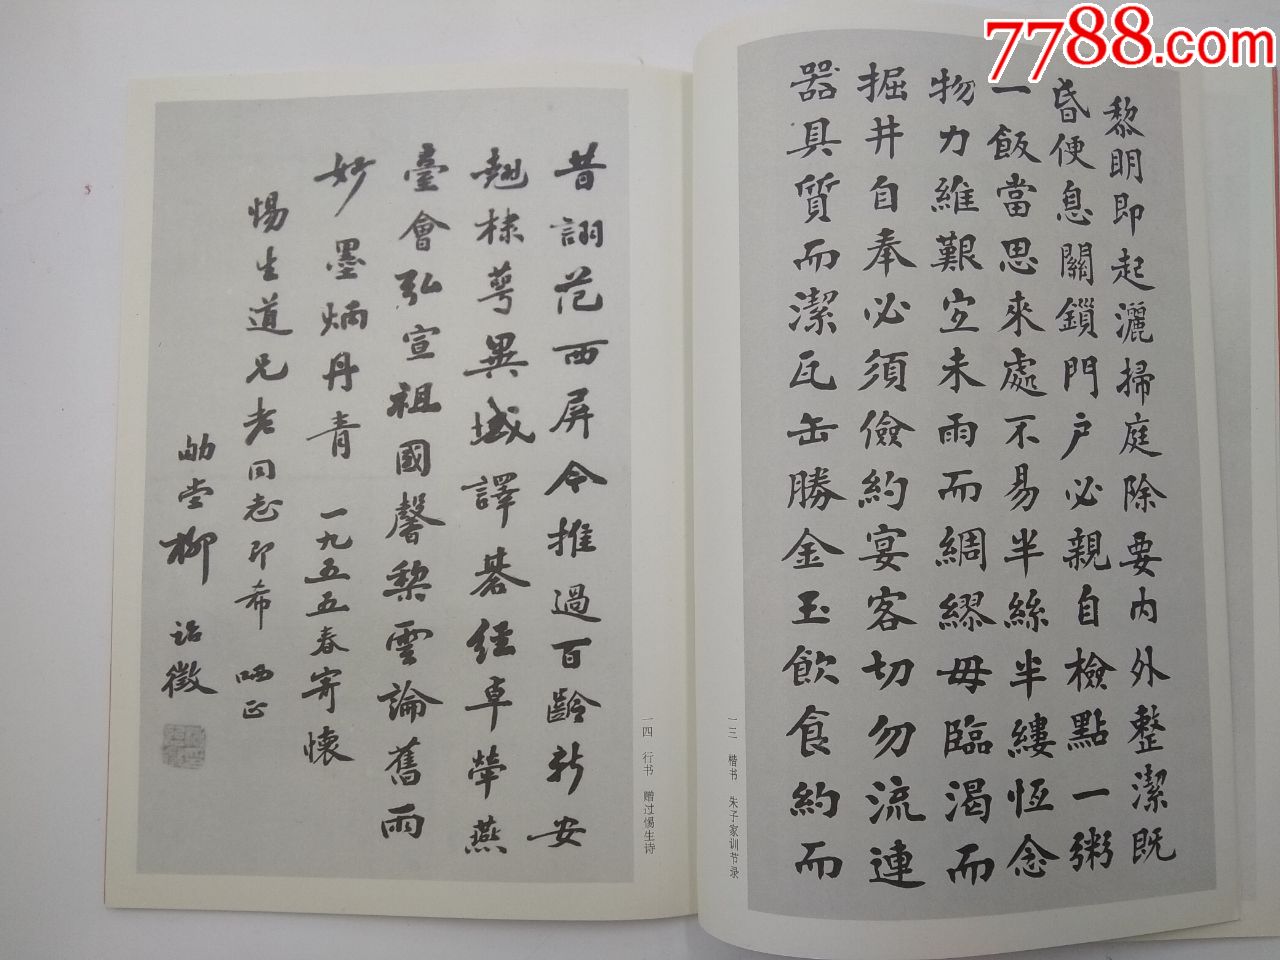 7788.com
黎明即起灑掃庭除要内外整潔既
昏便息關鎖門户必親自檢點一粥
一飯當思來處不易半絲半縷恆念
物力維艱宜未雨而綢繆毋臨渴而
掘井自奉必須儉約宴客切勿流連
器具質而潔瓦缶勝金玉飲食約而
一三 楷书 朱子家训节录
昔詡范西屏今推過百齡新安
翹棣萼異域譯棊經卓犖燕
臺會弘宣祖國馨棃雲論舊雨
妙墨炳丹青 一九五五春寄懷
惕生道兄老同志即希 哂正
劬堂柳 詒徵
一四 行书 赠过惕生诗